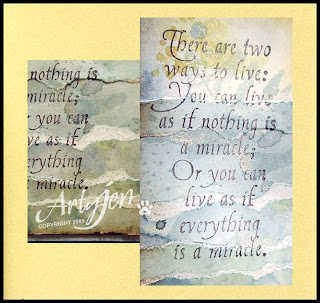 nothing is
miracle;
r you can
ve as if
erything
miracle.
Artyjen
COPYRIGHT
There are two
ways to live:
You can live
as if nothing is
a miracle;
Or you can
live as if
everything
is a miracle.